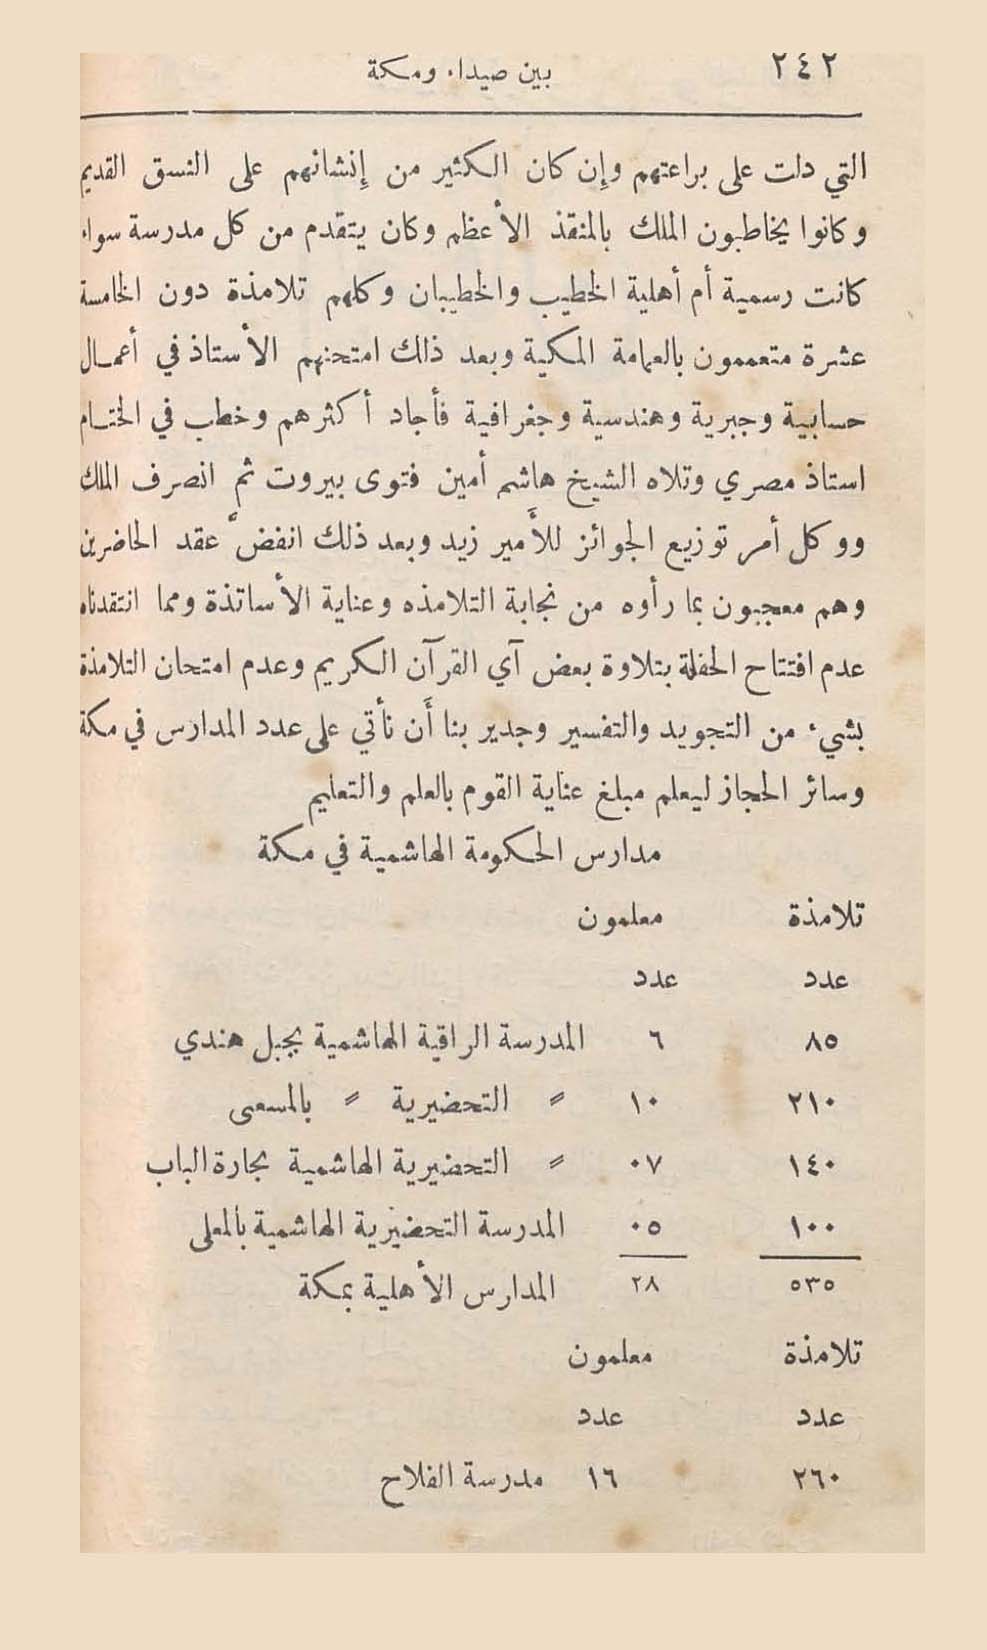 ٢٤٢ بين صيداء ومكة
التي دلت على براعتهم وإن كان الكثير من إنشائهم على النسق القديم
وكانوا يخاطبون الملك بالمنقذ الأعظم وكان يتقدم من كل مدرسة سواء
كانت رسمية أم أهلية الخطيب والخطيبان وكلهم تلامذة دون الخامسة
عشرة متعممون بالعمامة المكية وبعد ذلك امتحنهم الأستاذ في أعمال
حسابية وجبرية وهندسية وجغرافية فأجاد أكثرهم وخطب في الختام
استاذ مصري وتلاه الشيخ هاشم أمين فتوى بيروت ثم انصرف الملك
ووكل أمر توزيع الجوائز للأمير زيد وبعد ذلك انفضّ عقد الحاضرين
وهم معجبون بما رأوه من نجابة التلامذه وعناية الأساتذة ومما انتقدناه
عدم افتتاح الحفلة بتلاوة بعض آي القرآن الكريم وعدم امتحان التلامذة
بشيء من التجويد والتفسير وجدير بنا أَن نأتي على عدد المدارس في مكة
وسائر الحجاز ليعلم مبلغ عناية القوم بالعلم والتعليم
مدارس الحكومة الهاشمية في مكة
تلامذة معلمون
عدد عدد
٨٥ ٦ المدرسة الراقية الهاشمية بجبل هندي
٢١٠ ١٠ 〃 التحضيرية 〃 بالمسعى
١٤٠ ٠٧ 〃 التحضيرية الهاشمية بحارة الباب
١٠٠ ٠٥ المدرسة التحضيرية الهاشمية بالمعلى
٥٣٥ ٢٨ المدارس الأهلية بمكة
تلامذة معلمون
عدد عدد
٢٦٠ ١٦ مدرسة الفلاح